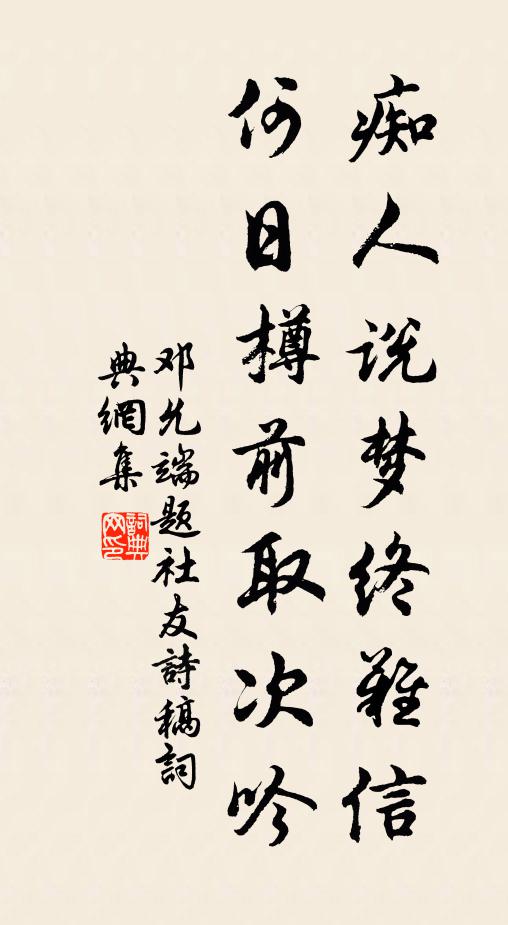 痴人说梦终难信
何日樽前取次吟
邓允端题社友詩稿詞
典網集
詞典网印